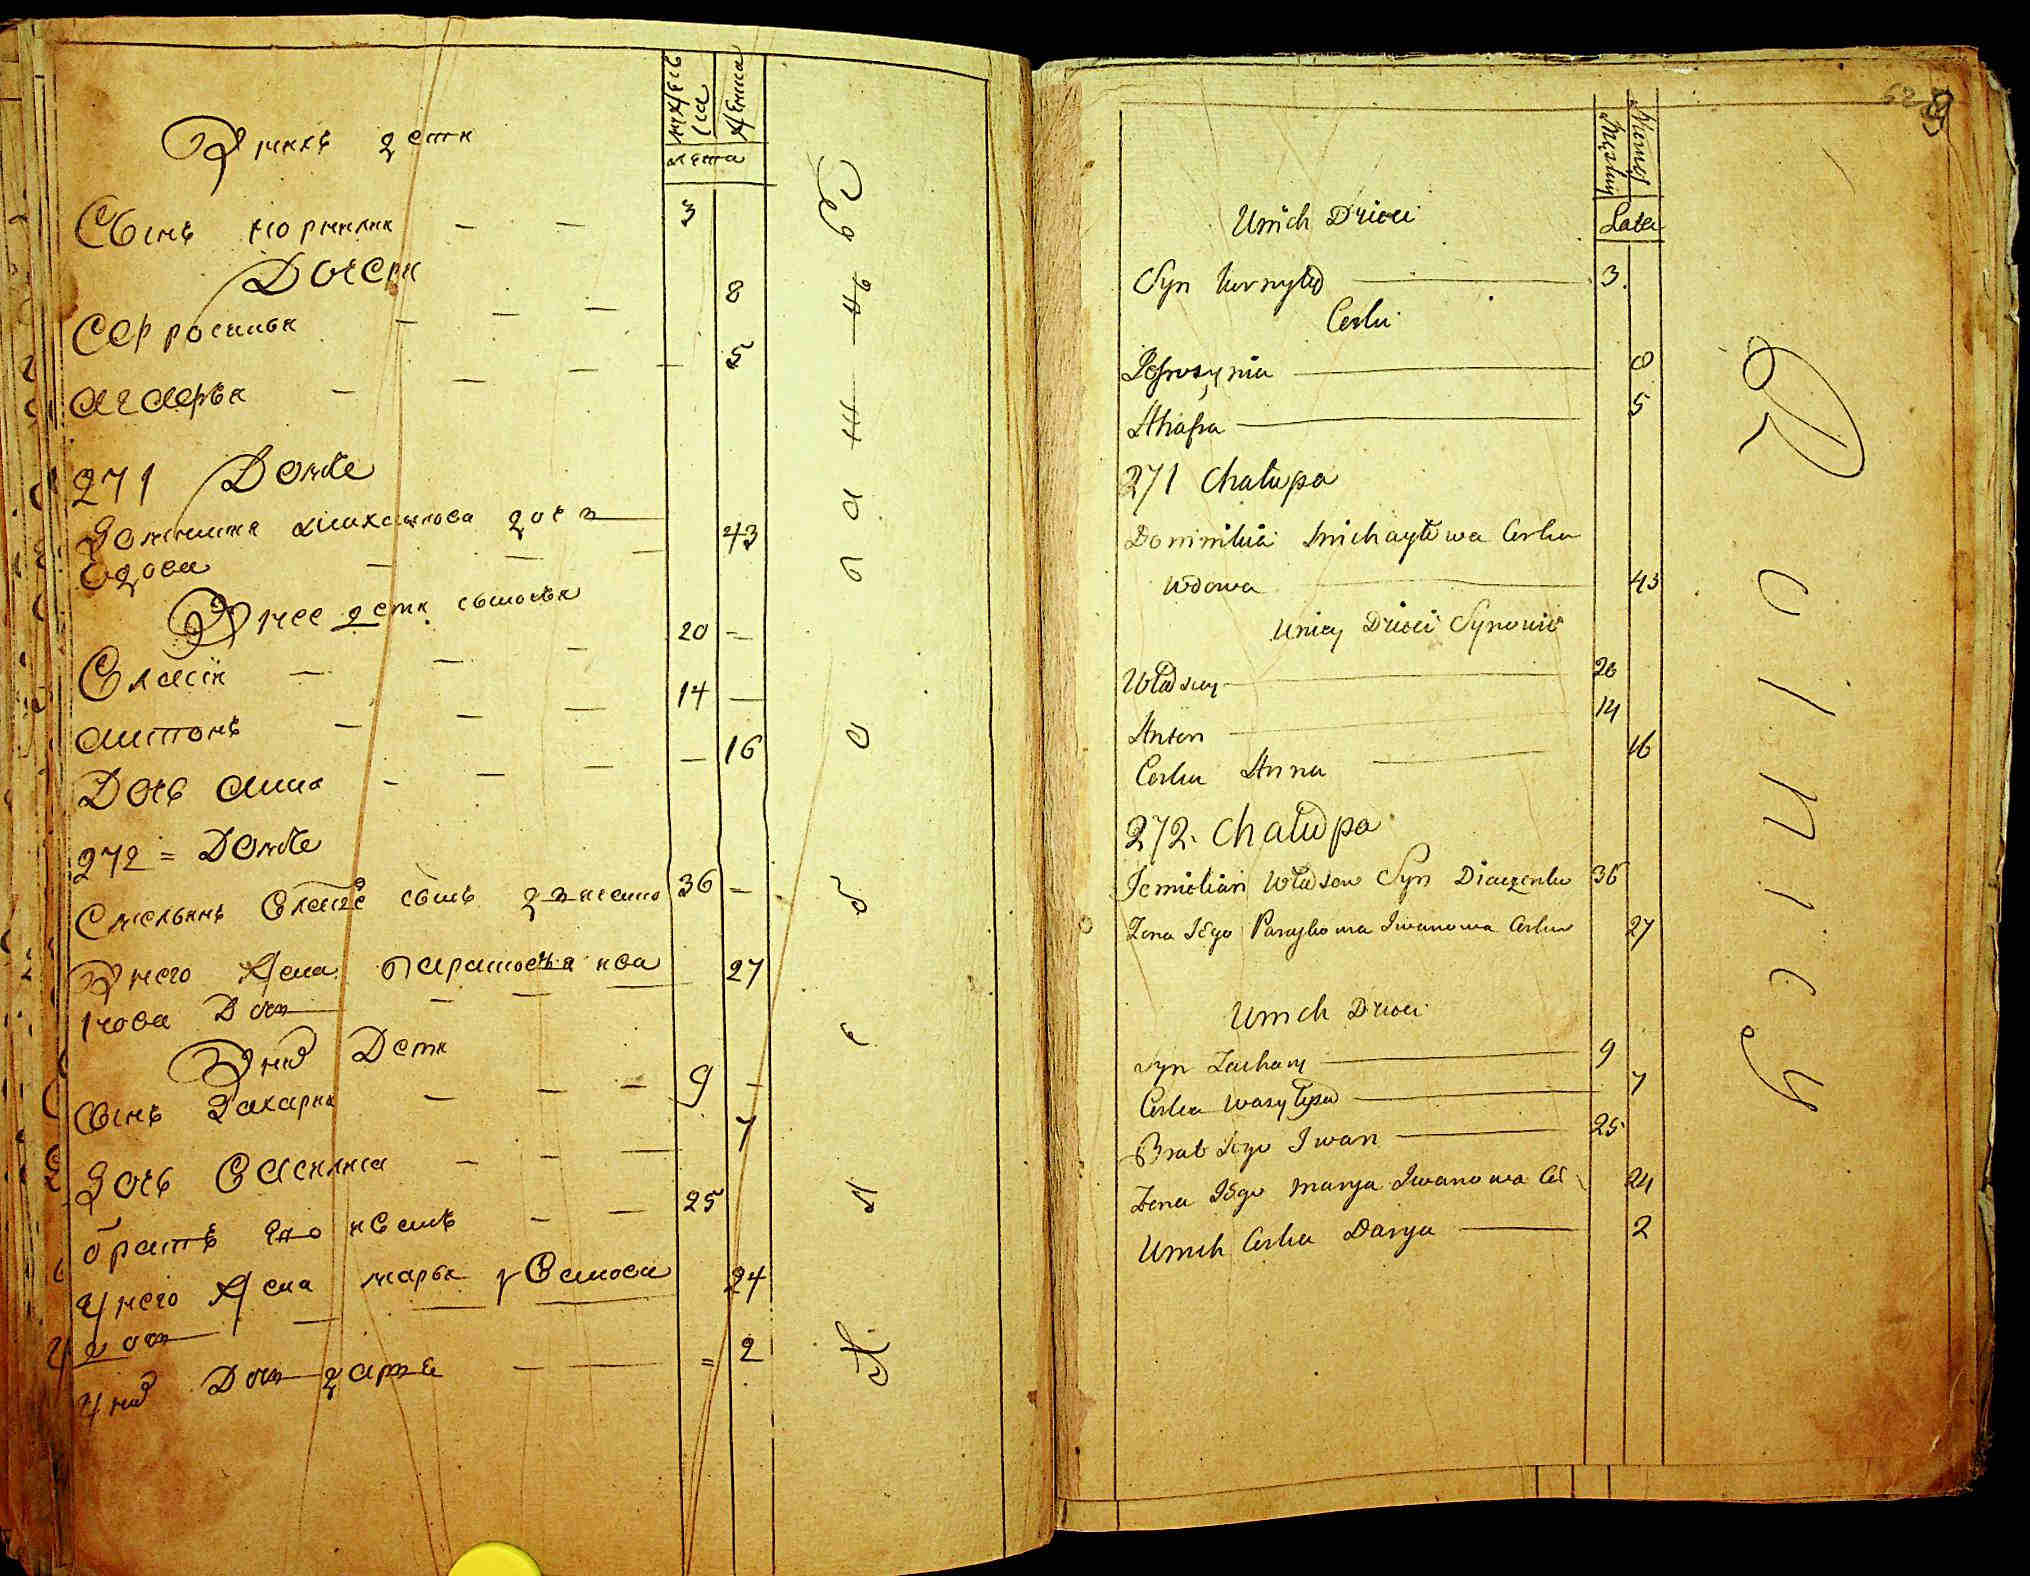 мужеска
женска
лета
У нихъ дети
Сынъ корнили — — 3
Дочери
Ефросиния — — — 8
агафья — — — — 5
271 Домъ
Домникия михайлова дочь
вдова — — — 43
У нее дети сыновья
Власий — — — 20 —
антонъ — — — 14 —
Дочь анна — — — — 16
272 = Домъ
Емельянъ Власовъ сынъ 36 —
У него жена Параскевия ива
нова Дочь — — — 27
У них Дети
Сынъ Захария — — — 9 —
Дочь Василиса — — — 7
братъ его иванъ — — 25
У него жена марья иванова
дочь — — — 24
У них Дочь дарья — — = 2
62
Męskiey
Żenskiey
Lata
Unich Dzieci
Syn Kornyło 3.
Corki
Jefrosynia 8
Ahafia 5
271 Chałupa
Dominikia Michayłowa Corka
Wdowa 43
Uniey Dzieci Synowie
Własiey 20
Anton 14
Corka Anna 16
272. Chałupa
Jemielian Własow Syn Diaczenko 36
Żona Jego Paraskowia Iwanowa Corka 27
Unich Dzieci
Syn Zachary 9
Corka Wasylisa 7
Brat Jego Iwan 25
Żona Jego Marya Iwanowa Cor 24
Unich Corka Darya 2
R o l n i c y